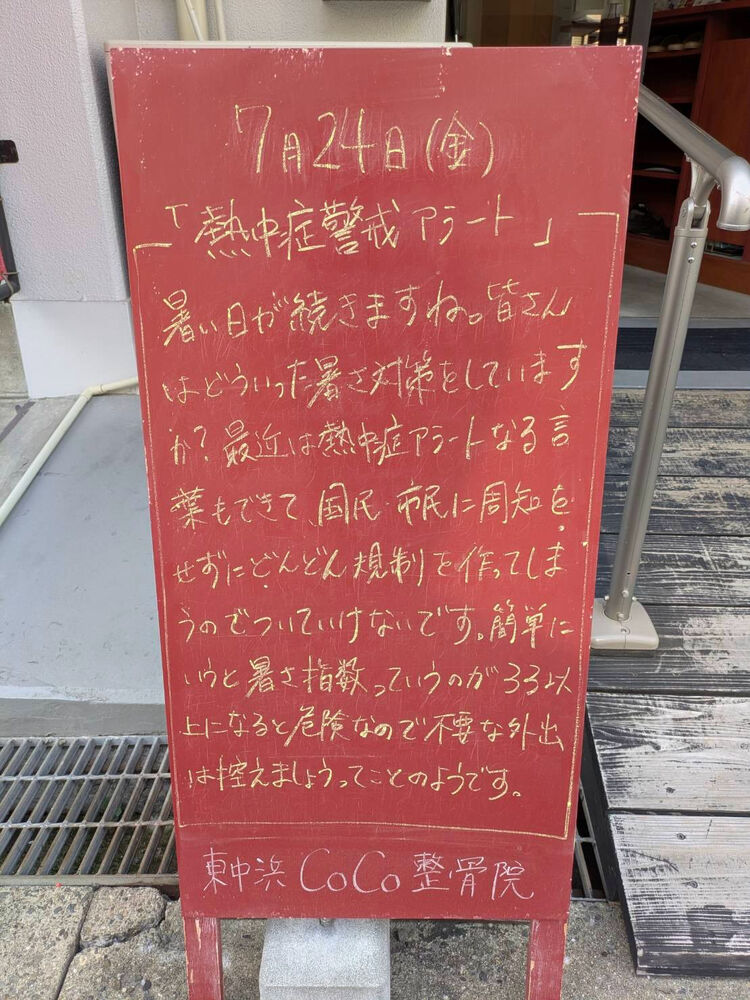 7月24日(金)
「熱中症警戒アラート」
暑い日が続きますね。皆さん
はどういった暑さ対策をしています
か?最近は熱中症アラートなる言
葉もできて、国民・市民に周知を
せずにどんどん規制を作ってしま
うのでついていけないです。簡単に
いうと暑さ指数っていうのが33以
上になると危険なので不要な外出
は控えましょうってことのようです。
東中浜 CoCo 整骨院